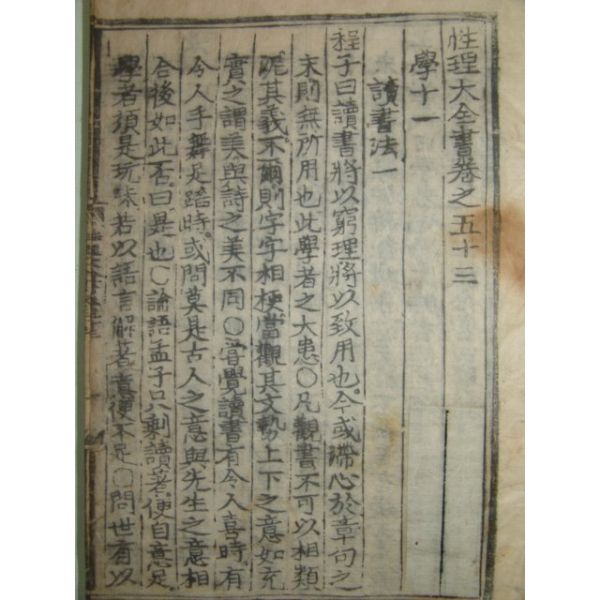 性理大全書卷之五十三
學十一
讀書法一
程子曰讀書將以窮理將以致用也今或滯心於章句之
末則無所用也此學者之大患○凡觀書不可以相類
泥其義不爾則字字相梗當觀其文勢上下之意如充
實之謂美與詩之美不同○嘗覺讀書有令人喜時有
令人手舞足蹈時或問莫是古人之意與先生之意相
合後如此否曰是也○論語孟子只剩讀著便自意足
學者須是玩味若以語言解著意便不足○問世有以